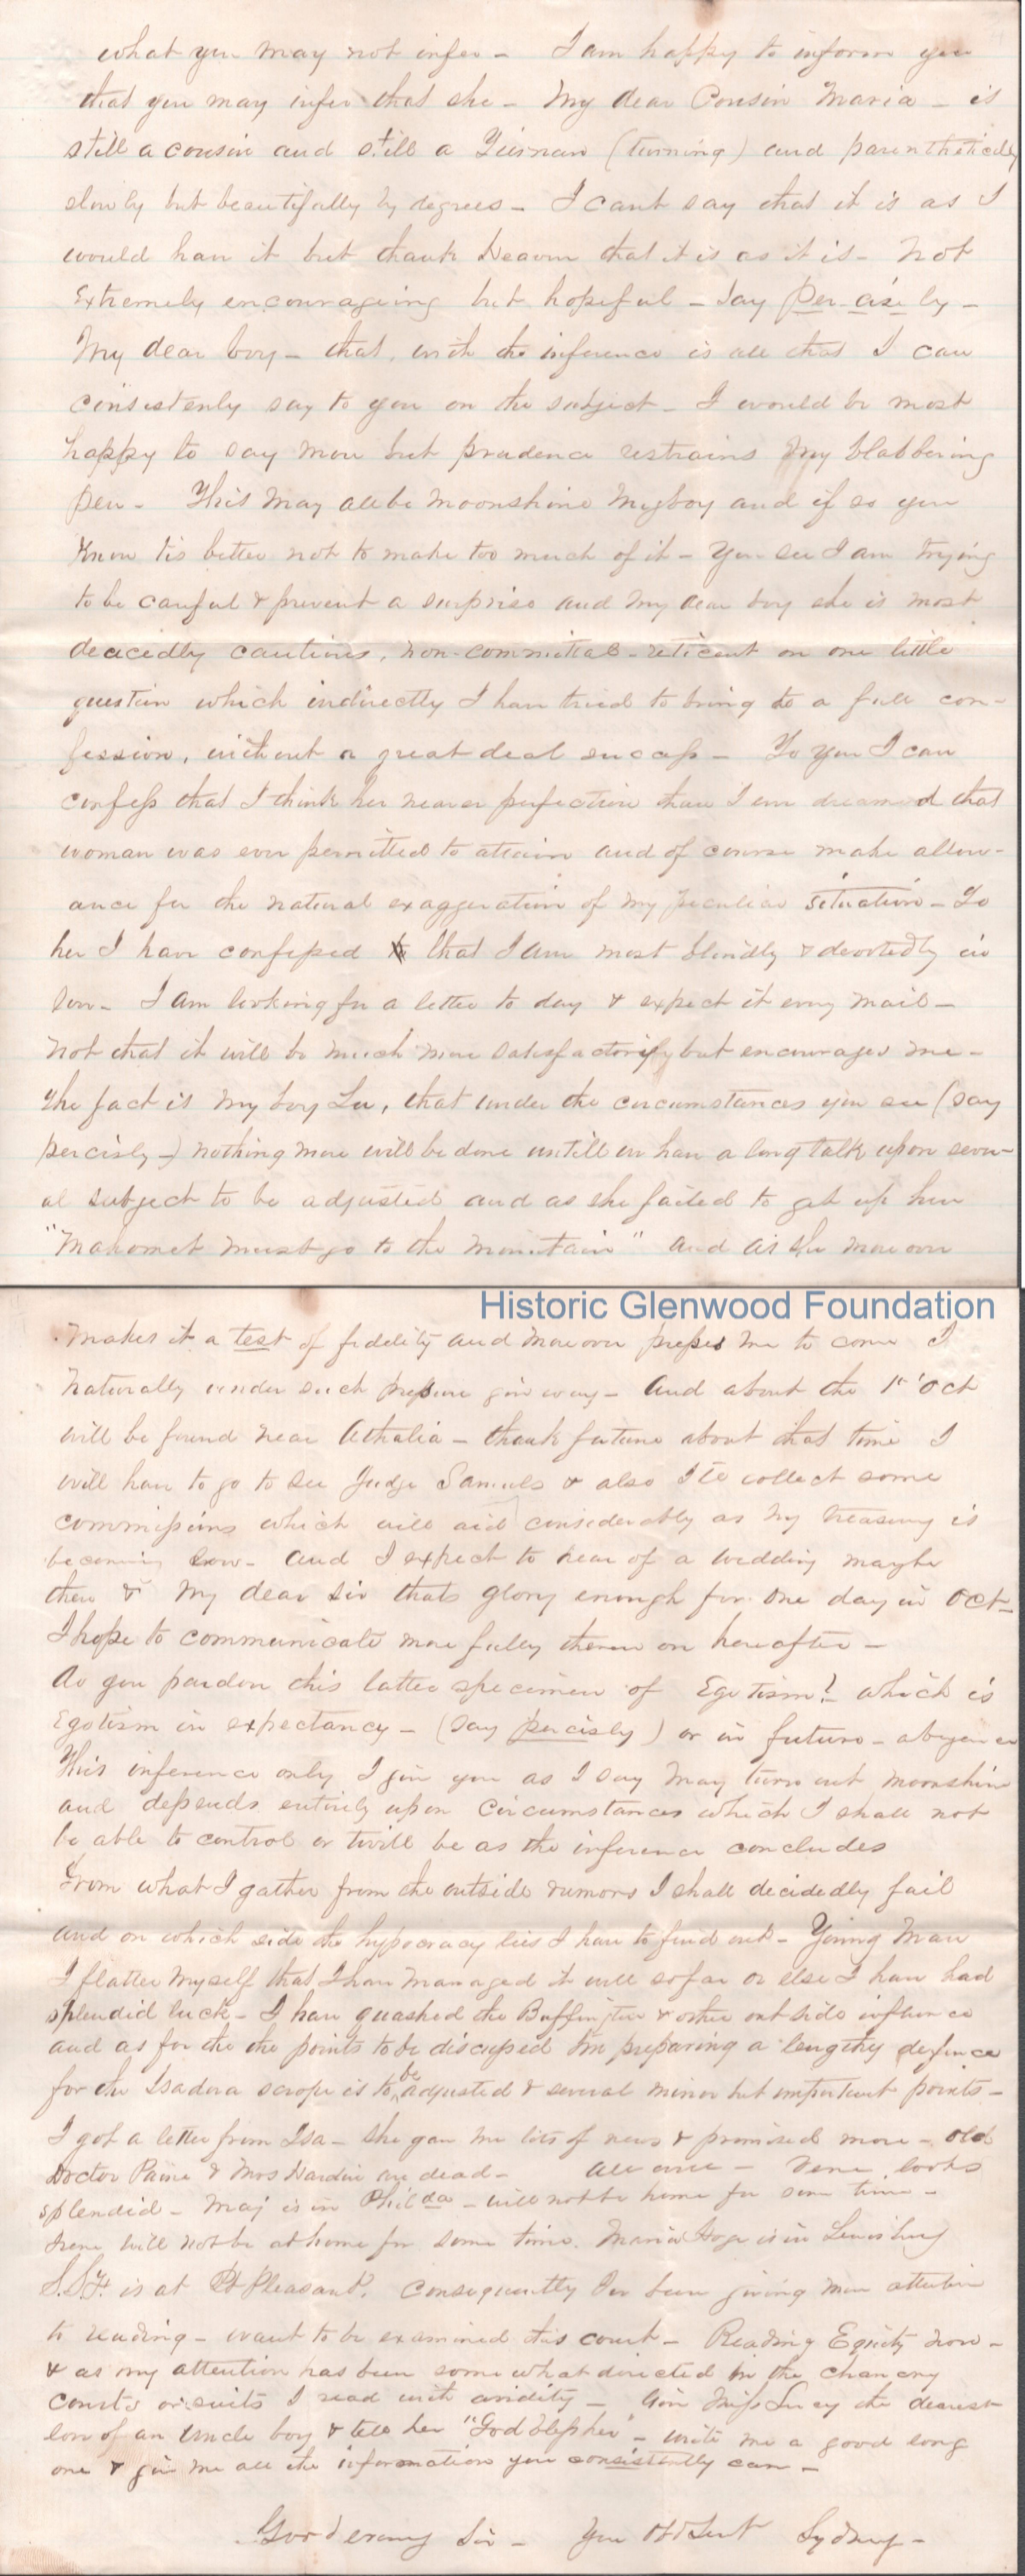 what you may not infer - I am happy to inform you
that you may infer that she - My dear Cousin Maria - is
still a cousin and still a (turning) and parenthetically
slowly but beautifully by degrees - I cant say that it is as I
would have it but thank Heaven that it is as it is - Not
Extremely encourageing but hopeful - Say Per-cise ly -
My dear boy - that, with the inference is all that I can
consistenly say to you on the subject - I would be most
happy to say more but prudence restrains my blabbering
pen - This may all be moonshine my boy and if so you
know tis better not to make too much of it - You see I am trying
to be careful & prevent a surprise and my dear boy she is most
deacedly cautious, non-committal - reticent on one little
question which indirectly I have tried to bring to a full con-
fession, without a great deal success - To you I can
confess that I think her nearer perfection than I ever dreamed that
woman was ever permitted to attain and of course make allow-
ance for the natural exaggeration of my peculiar situation - To
her I have confessed that I am most blindly & devotedly in
love - I am looking for a letter to day & expect it every mail -
Not that it will be much more satisfactorily but encourages me -
The fact is my boy Lu, that under the circumstances you see (say
percisly -) nothing more will be done untill we have a long talk upon sever-
al subject to be adjusted and as she failed to get up here
"Mahomet must go to the mountain" and as she moreover
Historic Glenwood Foundation
makes it a test of fidelity and moreover presses me to come I
naturally under such pressure give way - And about the 1st Oct
will be found near Athalia - thank fortune about that time I
will have to go to see Judge Samuels & also to collect some
commissions which will aid considerably as my treasury is
becoming low - And I expect to hear of a wedding maybe
then & my dear sir thats glory enough for one day in Oct -
I hope to communicate more fully there on hereafter -
Do you pardon this latter specimen of Egotism? - which is
Egotism in expectancy - (say percisly) or in futuro -
This inference only I give you as I say may turn out moonshine
and depends entirely upon circumstances which I shall not
be able to control or twill be as the inference concludes
From what I gather from the outside rumors I shall decidedly fail
and on which side the hypocracy lies I have to find out - Young Man
I flatter myself that I have managed it well so far or else I have had
splendid luck - I have quashed the Buffington & other outside influence
and as for the the points to be discussed I'm preparing a lengthy defence
for the Isadora scrape is to be adjusted & several minor but important points -
I got a letter from Isa - she gave me lots of news & promised more - Old
Doctor Paine & Mrs Hardin are dead - All well - looks
splendid - Maj is in Philda - will not be home for some time -
Irene will not be at home for some time. Maria Hoge is in Lewisburg
is at Pt Pleasant. Consequently I've been giving more attention
to reading - want to be examined this court - Reading Equity now -
& as my attention has been somewhat directed to the chancery
courts or suits I read with avidity - Give Miss Lucy the dearest
love of an Uncle boy & tell her "God bless her" - write me a good long
one & give me all the information you consistently can -
Good evening Sir - Your Obt Servt Sydney -